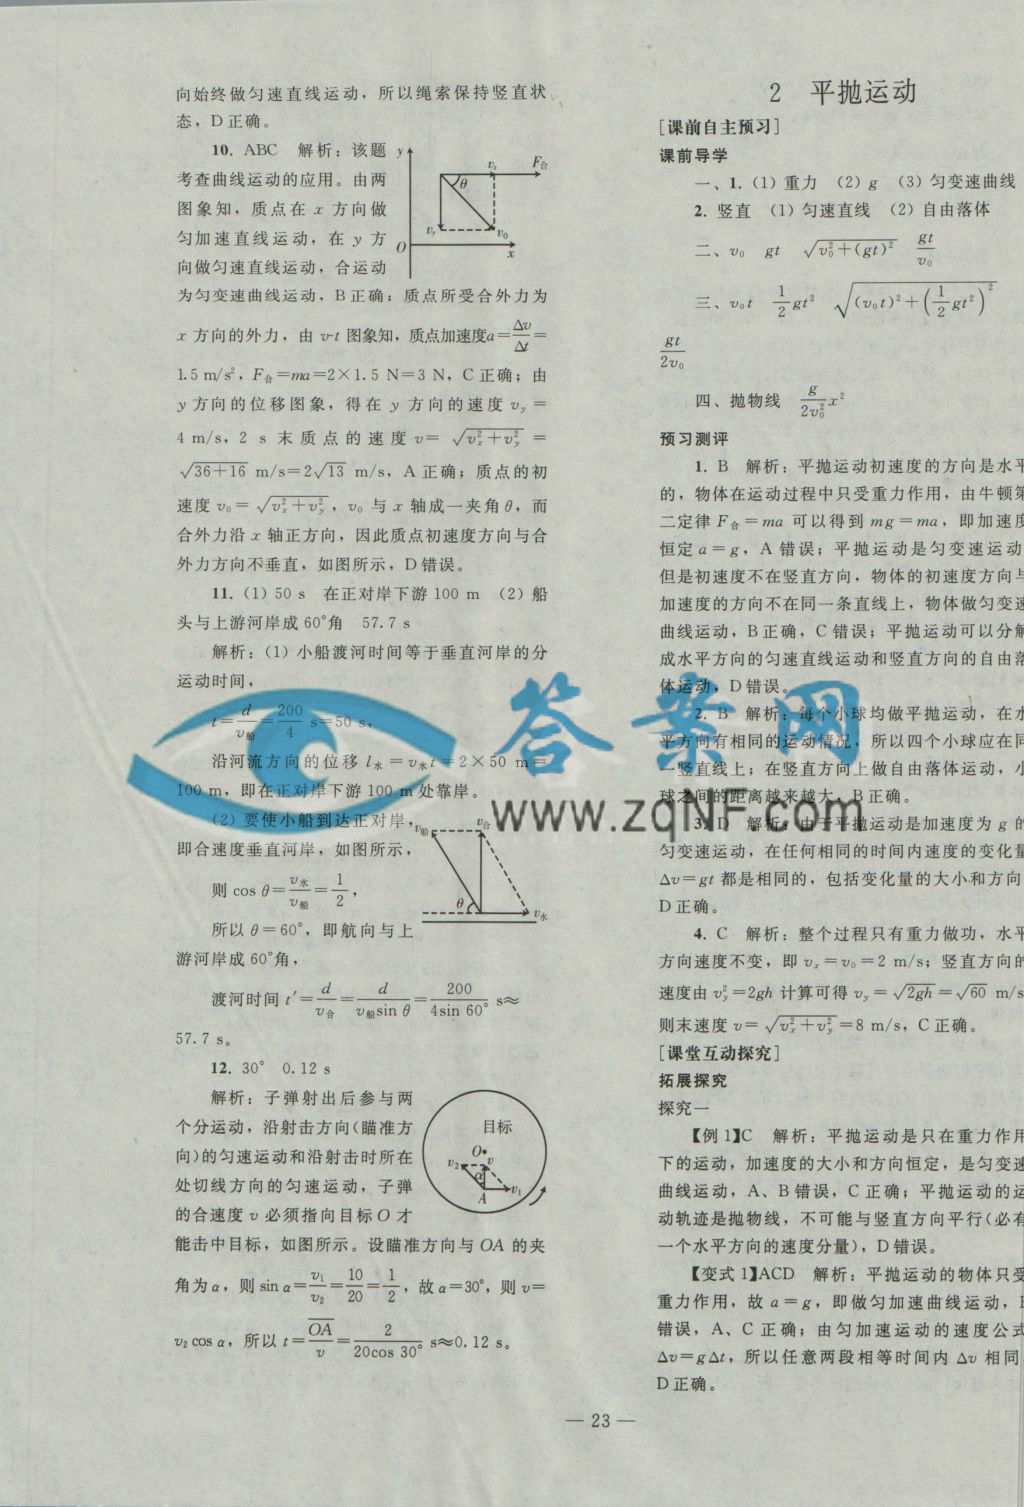 向始终做匀速直线运动，所以绳索保持竖直状
态，D正确。
10. ABC 解析：该题
考查曲线运动的应用。由两
图象知，质点在 x 方向做
匀加速直线运动，在 y 方
向做匀速直线运动，合运动
y
vₓ
F合
θ
v_y
v₀
O
x
为匀变速曲线运动，B正确；质点所受合外力为
x 方向的外力，由 v-t 图象知，质点加速度a=Δv/Δt=
1.5 m/s²，F合=ma=2×1.5 N=3 N，C正确；由
y 方向的位移图象，得在 y 方向的速度 v_y=
4 m/s，2 s 末质点的速度 v=√(vₓ²+v_y²)=
√(36+16) m/s=2√13 m/s，A正确；质点的初
速度 v₀=√(vₓ²+v_y²)，v₀ 与 x 轴成一夹角θ，而
合外力沿 x 轴正方向，因此质点初速度方向与合
外力方向不垂直，如图所示，D错误。
11. (1) 50 s 在正对岸下游 100 m (2) 船
头与上游河岸成60°角 57.7 s
解析：(1) 小船渡河时间等于垂直河岸的分
运动时间，
t=d/v船=200/4 s=50 s，
沿河流方向的位移 l水=v水t=2×50 m=
100 m，即在正对岸下游 100 m 处靠岸。
(2) 要使小船到达正对岸，
即合速度垂直河岸，如图所示，
则 cos θ=v水/v船=1/2，
所以 θ=60°，即航向与上
游河岸成 60°角，
v船
v合
θ
v水
渡河时间 t′=d/v合=d/(v船sin θ)=200/(4sin 60°) s≈
57.7 s。
12. 30° 0.12 s
解析：子弹射出后参与两
个分运动，沿射击方向(瞄准方
向)的匀速运动和沿射击时所在
处切线方向的匀速运动，子弹
的合速度 v 必须指向目标O才
目标
O
v₂
v
α
A
v₁
能击中目标，如图所示。设瞄准方向与 OA 的夹
角为α，则 sin α=v₁/v₂=10/20=1/2，故 α=30°，则 v=
v₂cos α，所以 t=OA/v=2/(20cos 30°) s≈0.12 s。
2 平抛运动
[课前自主预习]
课前导学
一、1. (1) 重力 (2) g (3) 匀变速曲线
2. 竖直 (1) 匀速直线 (2) 自由落体
二、v₀ gt √(v₀²+(gt)²) gt/v₀
三、v₀t ½gt² √((v₀t)²+(½gt²)²)
gt/2v₀
四、抛物线 g/(2v₀²)x²
预习测评
1. B 解析：平抛运动初速度的方向是水平
的，物体在运动过程中只受重力作用，由牛顿第
二定律 F合=ma 可以得到 mg=ma，即加速度
恒定 a=g，A错误；平抛运动是匀变速运动
但是初速度不在竖直方向，物体的初速度方向与
加速度的方向不在同一条直线上，物体做匀变速
曲线运动，B正确，C错误；平抛运动可以分解
成水平方向的匀速直线运动和竖直方向的自由落
体运动，D错误。
2. B 解析：每个小球均做平抛运动，在水
平方向有相同的运动情况，所以四个小球应在同
一竖直线上；在竖直方向上做自由落体运动，小
球之间的距离越来越大，B正确。
3. D 解析：由于平抛运动是加速度为 g 的
匀变速运动，在任何相同的时间内速度的变化量
Δv=gt 都是相同的，包括变化量的大小和方向
D正确。
4. C 解析：整个过程只有重力做功，水平
方向速度不变，即 vₓ=v₀=2 m/s；竖直方向的
速度由 v_y²=2gh 计算可得 v_y=√(2gh)=√60 m/s
则末速度 v=√(vₓ²+v_y²)=8 m/s，C正确。
[课堂互动探究]
拓展探究
探究一
【例1】C 解析：平抛运动是只在重力作用
下的运动，加速度的大小和方向恒定，是匀变速
曲线运动，A、B错误，C正确；平抛运动的运
动轨迹是抛物线，不可能与竖直方向平行(必有
一个水平方向的速度分量)，D错误。
【变式1】ACD 解析：平抛运动的物体只受
重力作用，故 a=g，即做匀加速曲线运动，B
错误，A、C正确；由匀加速运动的速度公式
Δv=gΔt，所以任意两段相等时间内 Δv 相同
D正确。
答案网
www.zqNF.com
— 23 —